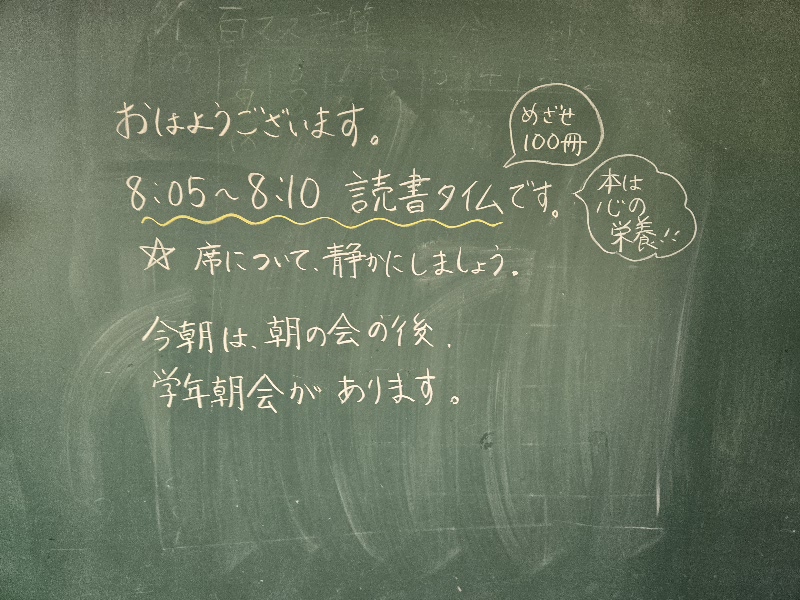 百マス計算
おはようございます。
めざせ
100冊
8:05～8:10 読書タイムです。
本は
心の
栄養!!
☆ 席について、静かにしましょう。
今朝は、朝の会の後、
学年朝会が あります。